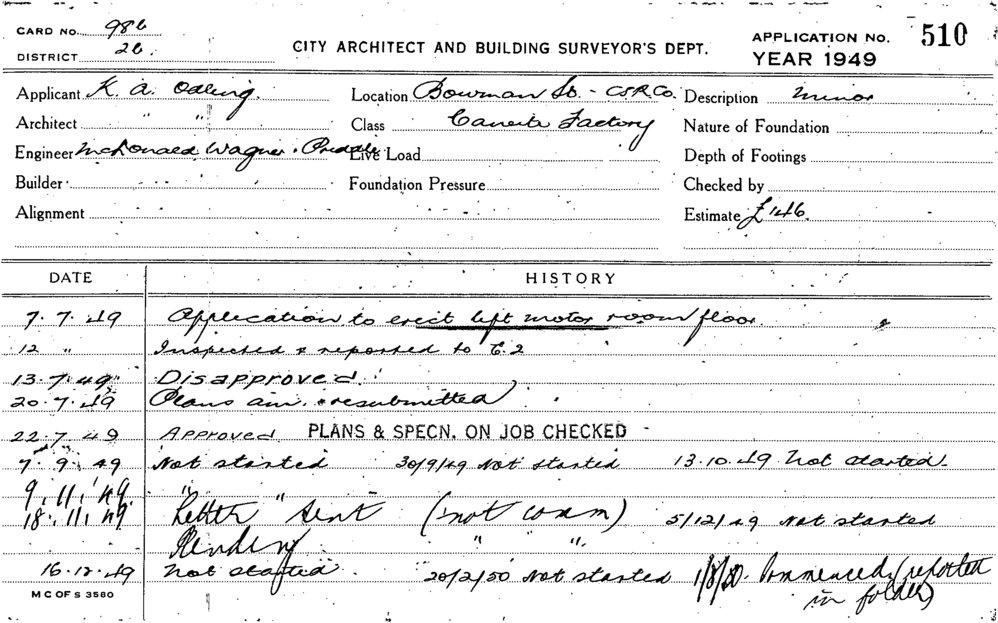 CARD No. 986
DISTRICT 26
CITY ARCHITECT AND BUILDING SURVEYOR'S DEPT.
APPLICATION No. 510
YEAR 1949
Applicant K. A. Odling. Location Bowman St. - CSR. Co. Description Minor
Architect " " Class Caneite Factory Nature of Foundation
Engineer McDonald Wagner & Priddle Live Load Depth of Footings
Builder Foundation Pressure Checked by
Alignment Estimate £146.
DATE HISTORY
7. 7. 49 Application to erect lift motor room floor.
12 " Inspected & reported to E.2
13. 7. 49 Disapproved.
20. 7. 49 Plans am. & resubmitted
22. 7. 49 Approved PLANS & SPECN. ON JOB CHECKED
7. 9. 49 Not started 30/9/49 Not started 13.10.49 Not started.
9. 11. 49. " "
18. 11. 49. Letter sent (not comm) 5/12/49 Not started
Pending " "
16. 12. 49 Not started. 20/2/50 Not started 1/8/50. Commenced (reported
in folder)
M C OF S 3580